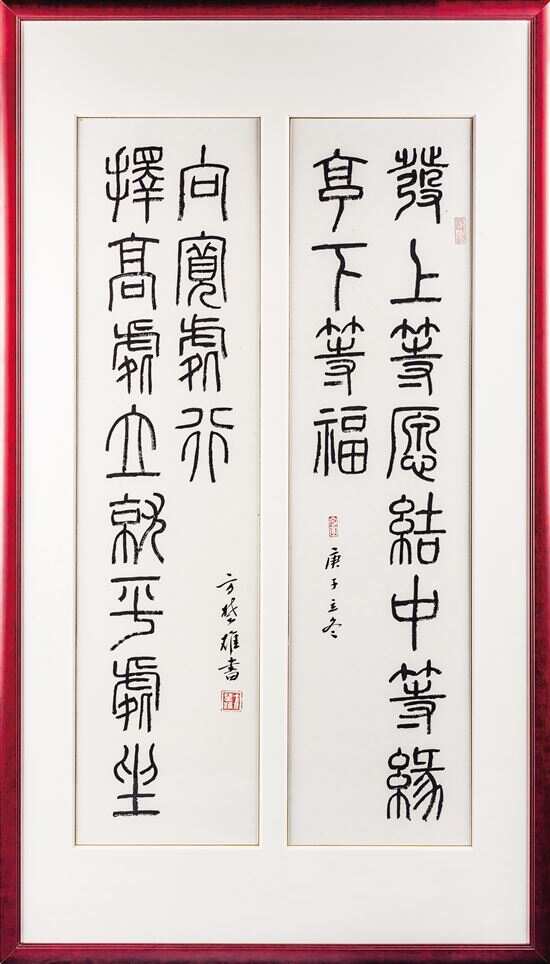 發上等愿結中等緣
享下等福
庚子立冬
擇高處立就平處坐
向寬處行
方楚雄書